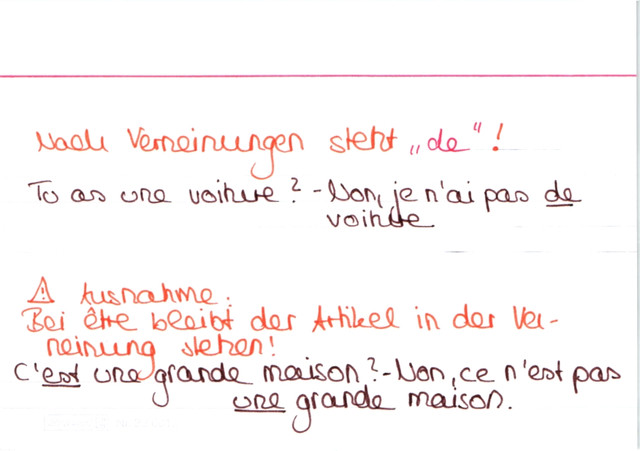 Nach Verneinungen steht „de“!
Tu as une voiture? - Non, je n'ai pas de
voiture
⚠ Ausnahme:
Bei être bleibt der Artikel in der Ver-
neinung stehen!
C'est une grande maison? - Non, ce n'est pas
une grande maison.